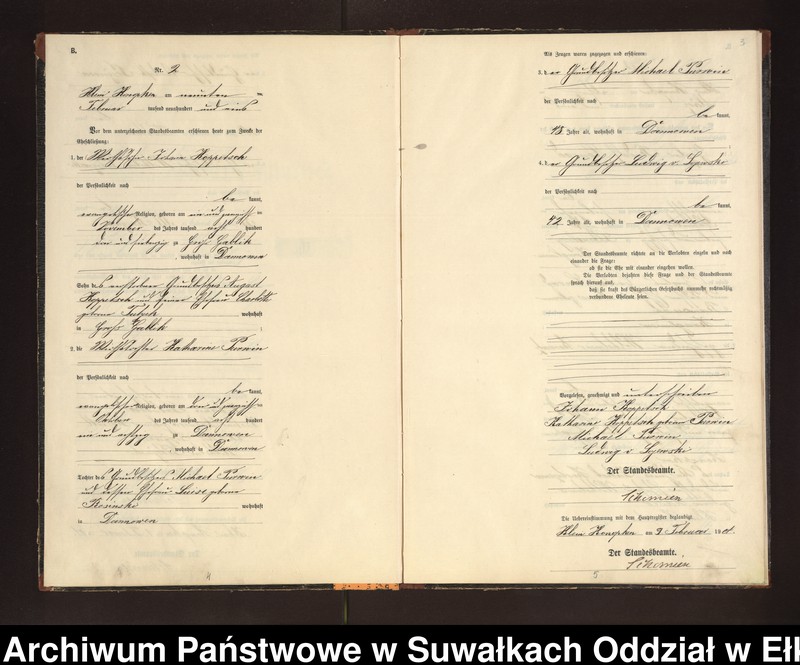 B.
Nr. 2
Klein Konopken am neunten
Februar tausend neunhundert und eins
Vor dem unterzeichneten Standesbeamten erschienen heute zum Zwecke der
Eheschließung:
1. der Johann Koppetsch
der Persönlichkeit nach
be kannt,
evangelischer Religion, geboren am
November des Jahres tausend acht hundert
drei und siebenzig zu Groß Gablick
, wohnhaft in Dannowen
Sohn des verstorbenen Grundbesitzers August
Koppetsch und seiner Ehefrau Charlotte
geborene wohnhaft
in Groß Gablick
2. die Katharine Purwin
der Persönlichkeit nach
be kannt,
evangelischer Religion, geboren am
Oktober des Jahres tausend acht hundert
ein und achtzig zu Dannowen
, wohnhaft in Dannowen
Tochter des Grundbesitzers Michael Purwin
und dessen Ehefrau Luise geborene
Kosinski wohnhaft
in Dannowen
4
3
Als Zeugen waren zugezogen und erschienen:
3. der Grundbesitzer Michael Purwin
der Persönlichkeit nach
be kannt,
48 Jahre alt, wohnhaft in Dannowen
4. der Grundbesitzer Ludwig v. Lyewski
der Persönlichkeit nach
be kannt,
42 Jahre alt, wohnhaft in Dannowen
Der Standesbeamte richtete an die Verlobten einzeln und nach
einander die Frage:
ob sie die Ehe mit einander eingehen wollen.
Die Verlobten bejahten diese Frage und der Standesbeamte
sprach hierauf aus,
daß sie kraft des Bürgerlichen Gesetzbuchs nunmehr rechtmäßig
verbundene Eheleute seien.
Vorgelesen, genehmigt und unterschrieben
Johann Koppetsch
Katharine Koppetsch geborene Purwin
Michael Purwin
Ludwig v. Lyewski
Der Standesbeamte.
Schimien
Die Uebereinstimmung mit dem Hauptregister beglaubigt
Klein Konopken am 9. Februar 1901.
Der Standesbeamte.
Schimien
5
Archiwum Państwowe w Suwałkach Oddział w Eł